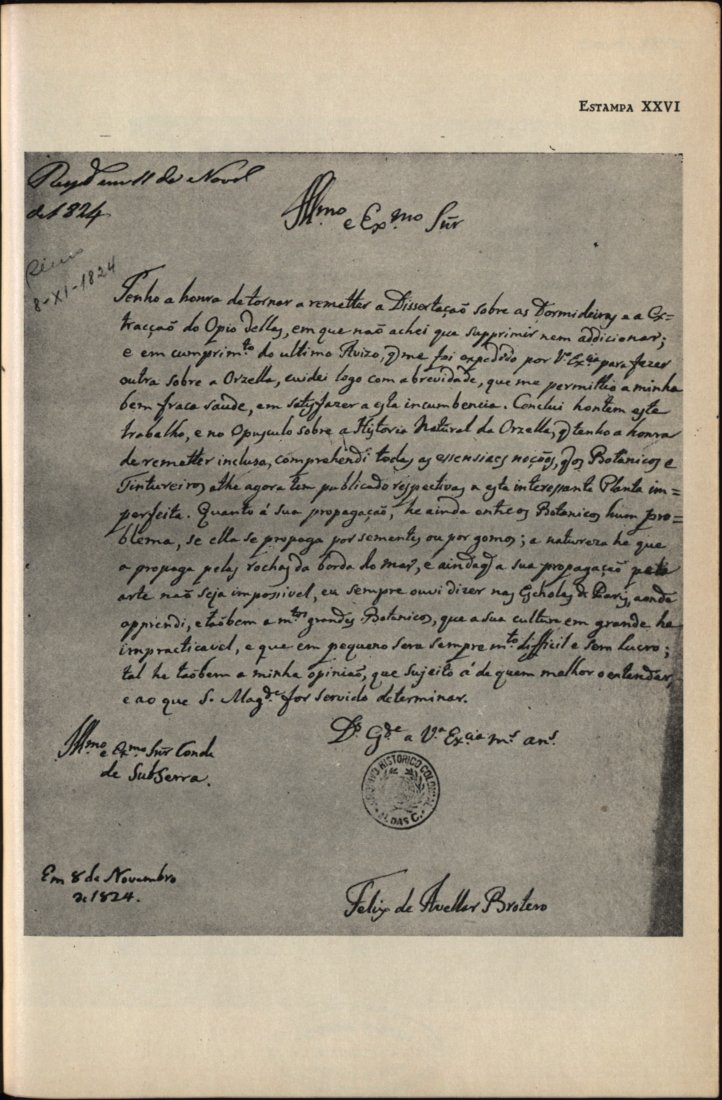 Estampa XXVI
em 11 de Novol
de 1824
Illmo e Exmo Sñr
8-XI-1824
Tenho a honra de tornar a remetter a Dissertação sobre as Dormideiras e a Ex=
tracção do Opio dellas, em que não achei que supprimir nem addicionar;
e em cumprimto do ultimo Avizo, q me foi expedido por Va Excia para fazer
outra sobre a Orzella, cuidei logo com a brevidade, que me permittio a minha
bem fraca saude, em satisfazer a esta incumbencia. Conclui hontem este
trabalho, e no Opusculo sobre a Historia Natural da Orzella, q tenho a honra
de remetter incluso, comprehendi todas as essensiaes noções, q os Botanicos e
Tintureiros athe agora tem publicado respectivas a esta interessante Planta im=
perfeita. Quanto á sua propagação, he ainda entre os Botanicos hum pro=
blema, se ella se propaga por sementes ou por gomos; a natureza he que
a propaga pelas rochas da borda do mar, e ainda q a sua propagação pela
arte não seja impossivel, eu sempre ouvi dizer nas Escholas de Pariz, aonde
apprendi, e taõbem a mtos grandes Botanicos, que a sua cultura em grande he
impracticavel, e que em pequeno sera sempre mto difficil e sem lucro;
tal he taõbem a minha opinião, que sujeito á de quem melhor o entender,
e ao que S. Magde for servido determinar.
Ds Gde a Va Excia ms ans.
Illmo e Exmo Sñr Conde
de SubSerra.
ARQUIVO HISTORICO COLONIAL
Em 8 de Novembro
de 1824.
Felix de Avellar Brotero